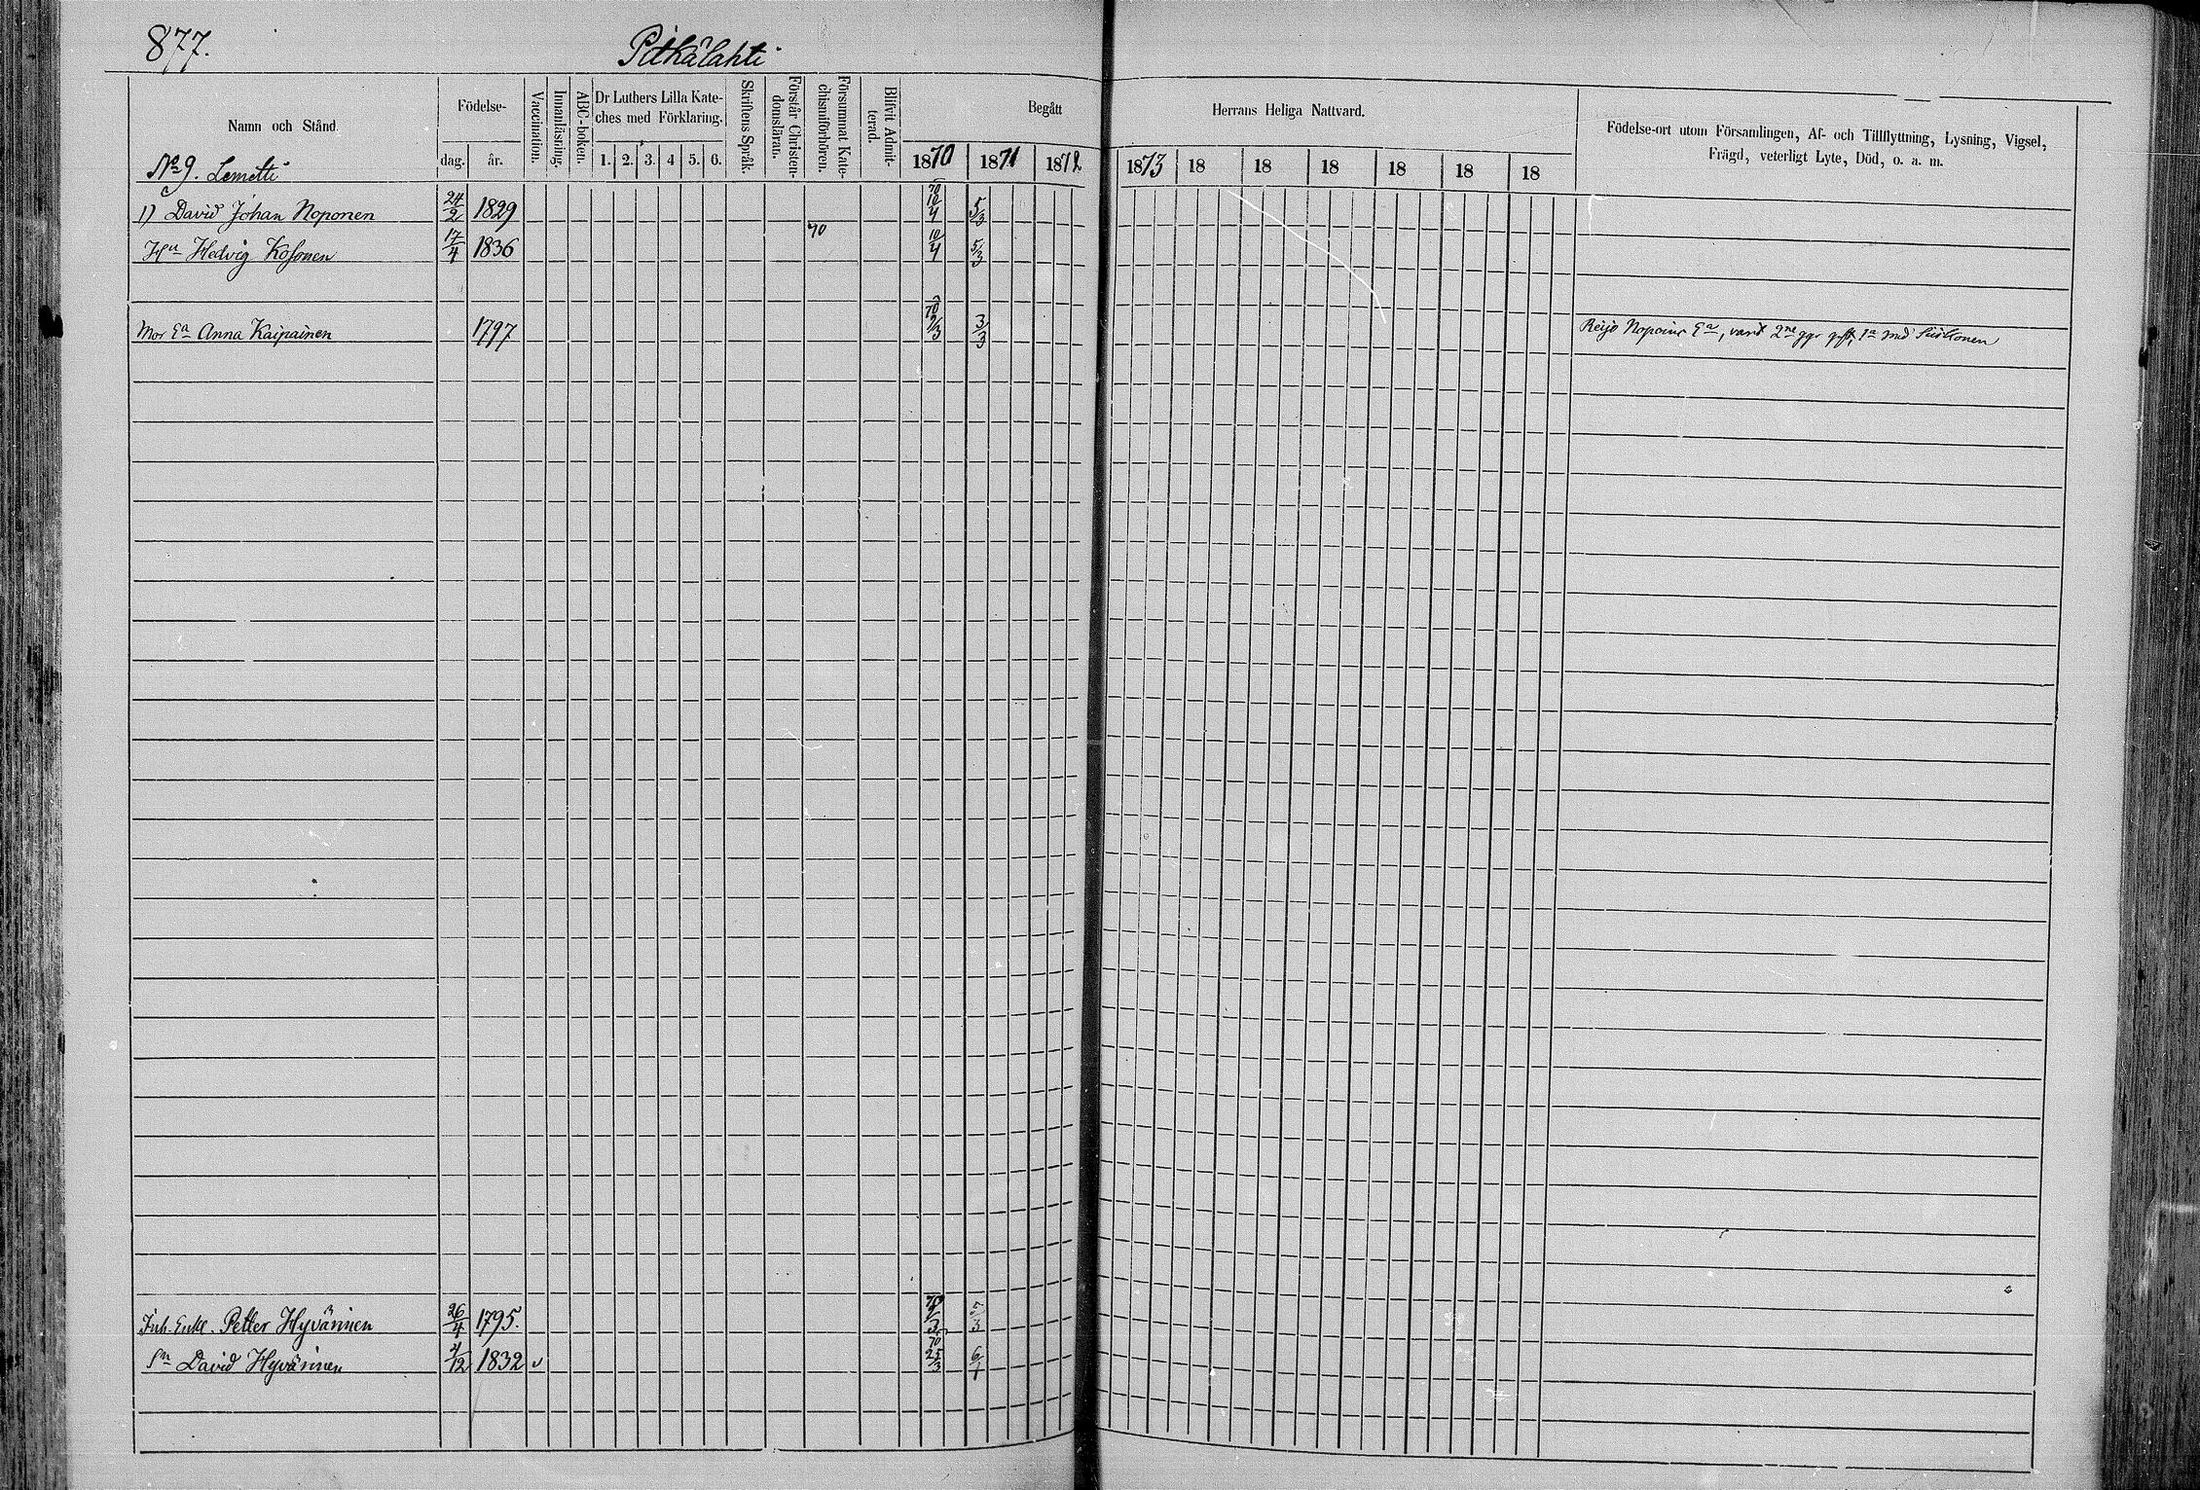 877.
Pitkälahti
Namn och Stånd.
Födelse-
dag.
år.
Vaccination.
Innanläsning.
ABC-boken.
Dr Luthers Lilla Kate-
ches med Förklaring.
1. 2. 3. 4 5. 6.
Skriftens Språk.
Förstår Christen-
domsläran.
Försummat Kate-
chismiförhören.
Blifvit Admit-
terad.
Begått Herrans Heliga Nattvard.
1870 1871 1872 1873 18 18 18 18 18 18
Födelse-ort utom Församlingen, Af- och Tillflyttning, Lysning, Vigsel,
Frägd, veterligt Lyte, Död, o. a. m.
No 9. Lemetti
1) David Johan Noponen 24/2 1829 70 10/4 5/3
Hu Hedvig Kosonen 17/4 1836 70 10/4 5/3
Mor Ea Anna Kaipainen 1797 70 /3 3/3 Reijo Ea, 2ne ggr gift, 1a med
Inh. Enkl. Petter Hyvärinen 26/4 1795. 70 /3 5/3
Sn David Hyvärinen 4/12 1832 v 70 25/3 6/1